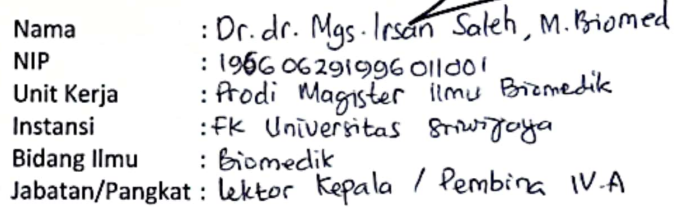 Nama : Dr. dr. Mgs. Irsan Saleh, M.Biomed
NIP : 196606291996011001
Unit Kerja : Prodi Magister Ilmu Biomedik
Instansi : FK Universitas Sriwijaya
Bidang Ilmu : Biomedik
Jabatan/Pangkat : Lektor Kepala / Pembina IV.A